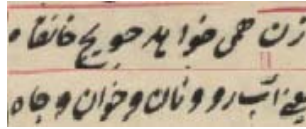 زن همی خواهد حویج خانقاه
یعنی آب رو و نان و خوان و جاه